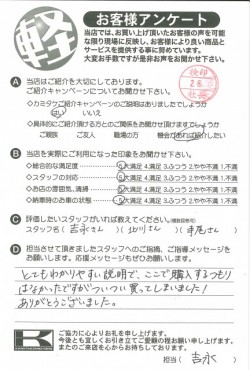 軽
お客様アンケート
当店では、お買い上げ頂いたお客様の声を可能
な限り現場に反映し、お客様により良い商品と
サービスを提供する事に努めています。
大変お手数ですが是非お声をお聞かせ下さい。
A 当店はご紹介を大切にしております。
ご紹介キャンペーンについてお聞かせ下さい
＜カミタケご紹介キャンペーンの説明はありましたでしょうか
はい いいえ
＜具体的にご紹介頂ける方とのご関係をお聞かせ頂けますでしょうか
ご親族 ご友人 職場の方 機会があれば紹介したい
B 当店を実際にご利用になった印象をお聞かせ下さい。
＜総合的な満足度 5.大満足 4.満足 3.ふつう 2.やや不満 1.不満
＜スタッフの対応 5.大満足 4.満足 3.ふつう 2.やや不満 1.不満
＜お店の雰囲気、清掃 5.大満足 4.満足 3.ふつう 2.やや不満 1.不満
＜納車時のお車の状態 5.大満足 4.満足 3.ふつう 2.やや不満 1.不満
C 評価したいスタッフがいれば教えてください。(複数回答可)
スタッフ名( 吉永さん )( 北川さん )( 寺尾さん )
D 担当させて頂きましたスタッフへのご指摘、ご指導メッセージを
お願いします。応援メッセージもぜひお願いします。
とてもわかりやすい説明で、ここで購入するつもり
はなかったですがついつい買ってしまいました!
ありがとうございました。
ご協力に心よりお礼を申し上げます。
今後とも宜しくお引き立てご愛顧の程お願い申し上げます。
またのご来店を心からお待ちしております。
担当( 吉永 )